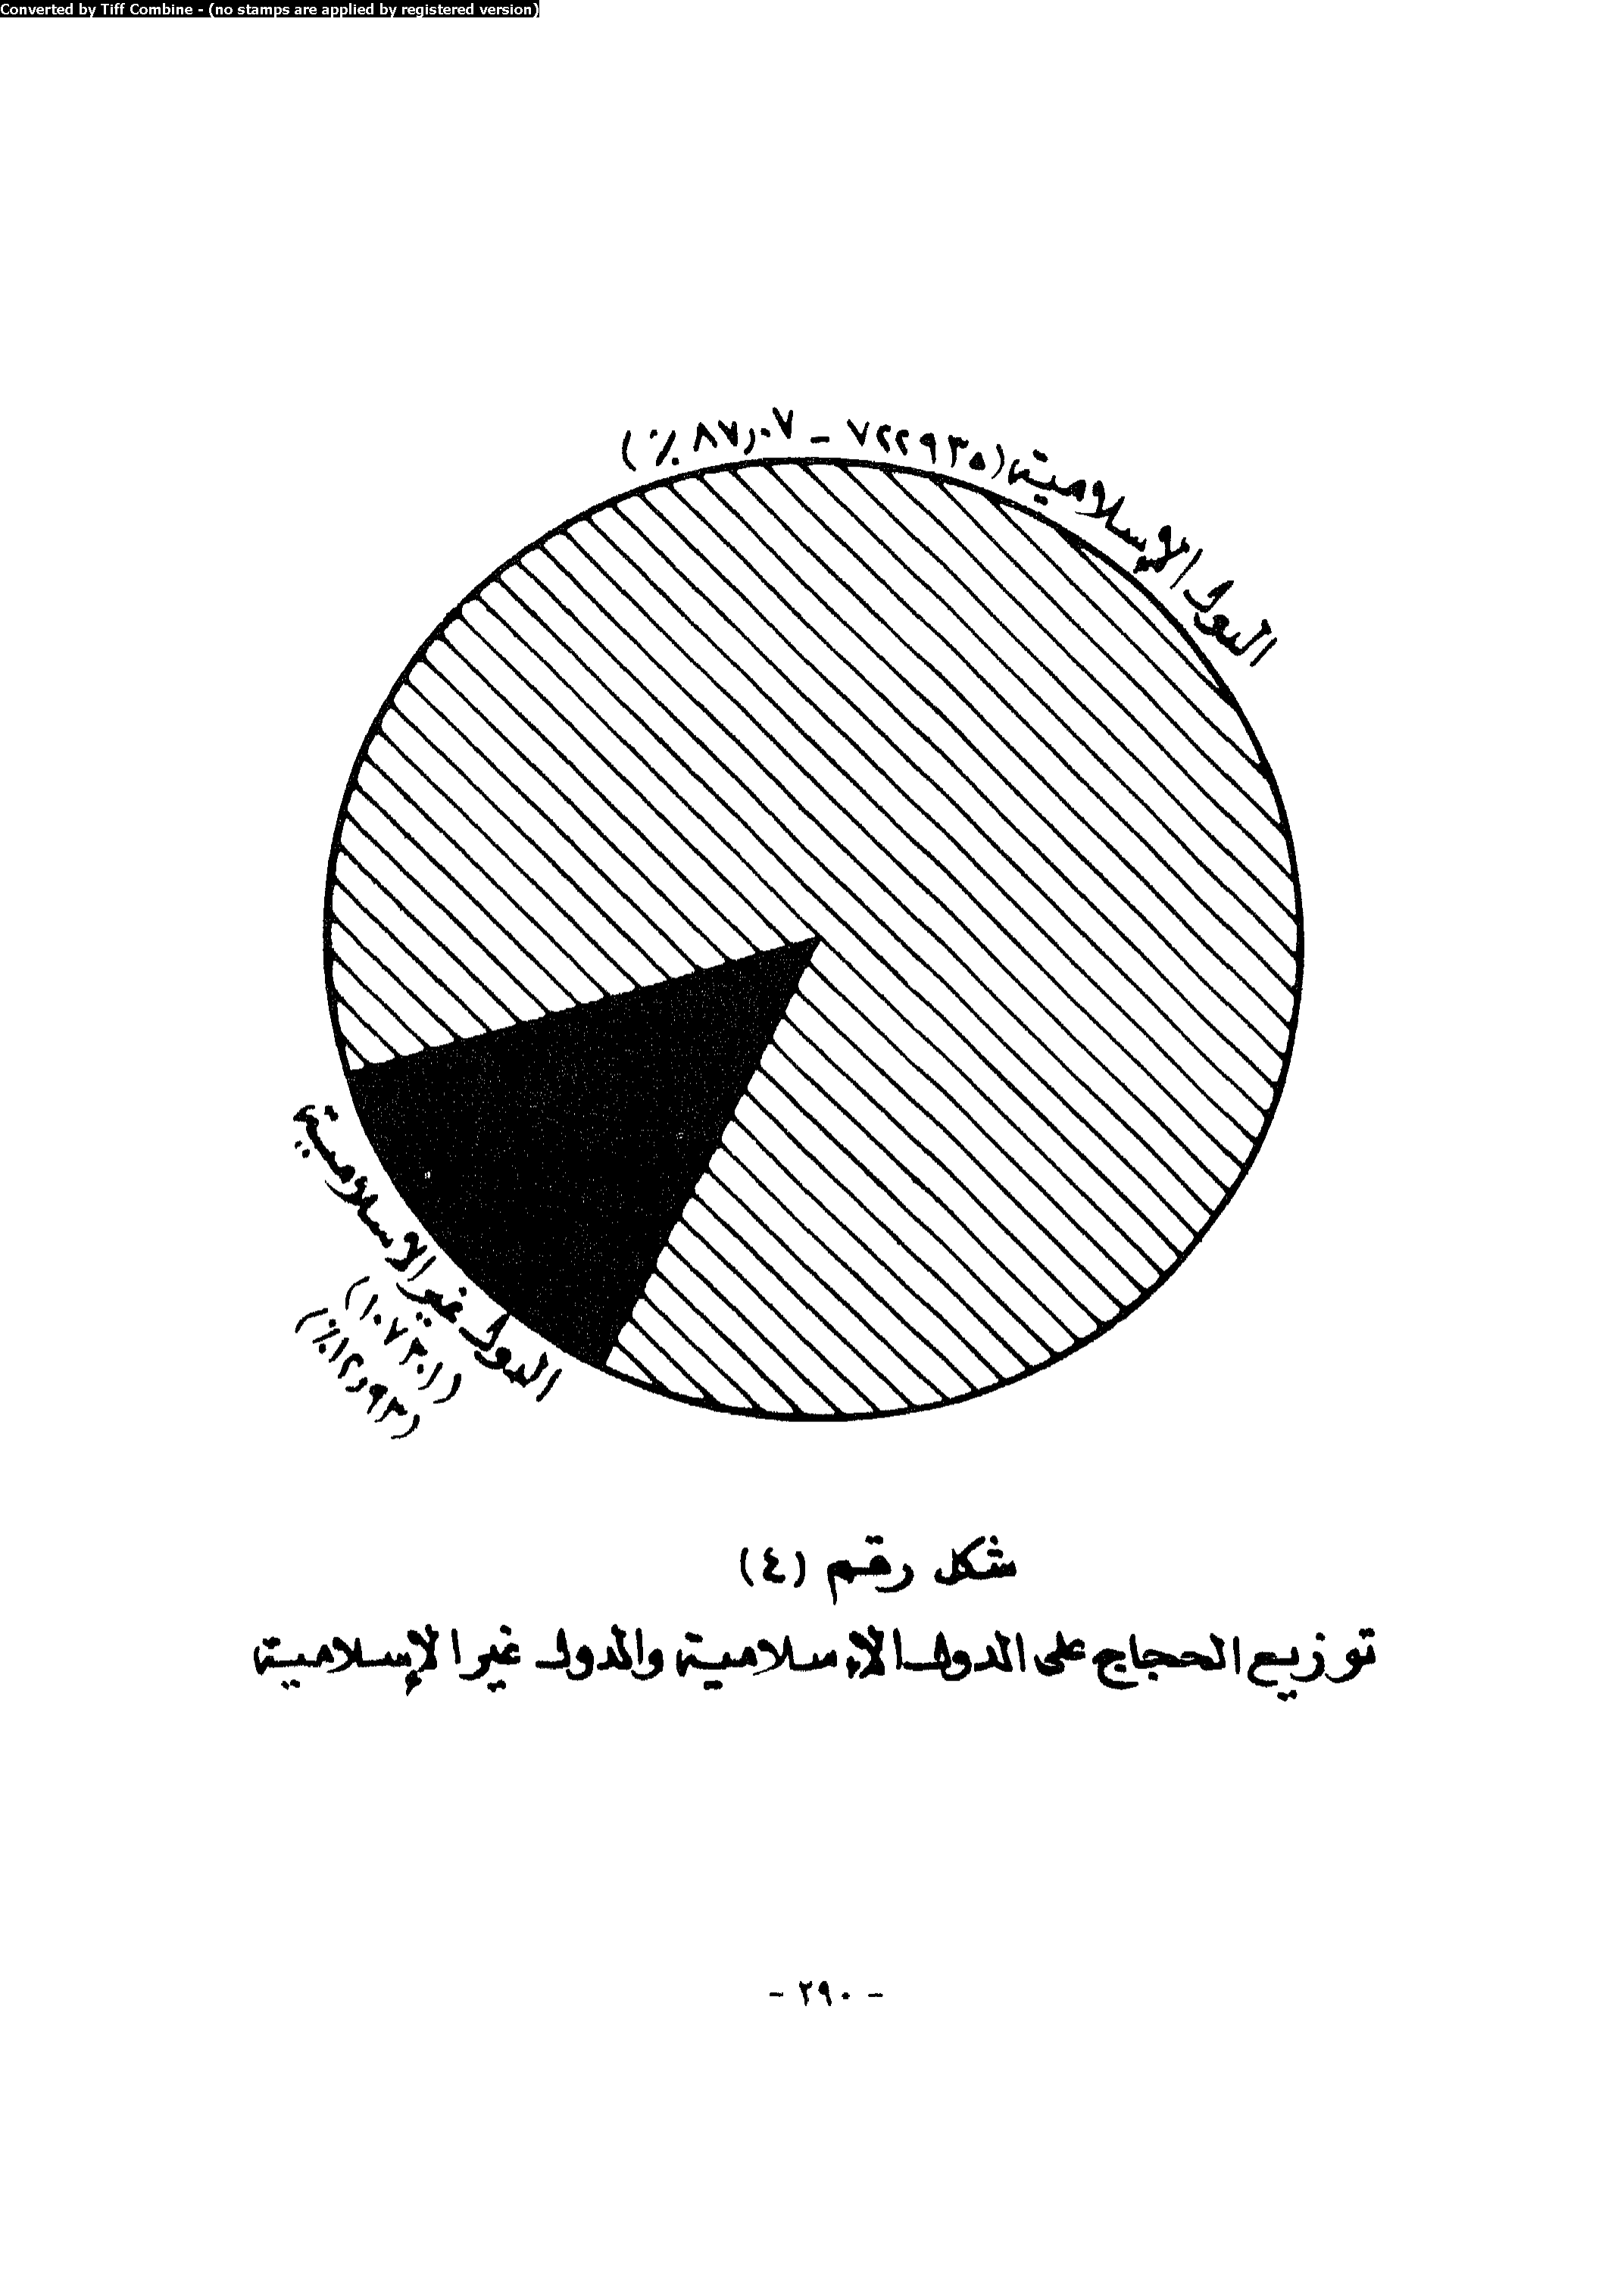 Converted by Tiff Combine - (no stamps are applied by registered version)
الدول الإسلامية (٧٢٢٩٣٥ - ٨٧,٠٧ ٪)
الدول غير الاسلامية
(١٠٧٣٠١)
(١٢,٩٣٪)
شكل رقم (٤)
توزيع الحجاج على الدول الإسلامية والدول غير الإسلامية
- ٢٩٠ -